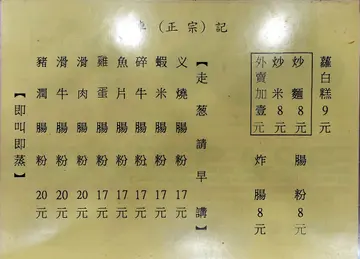 （正宗）記
蘿白糕9元
炒麵8元
炒米8元
外賣加壹元
腸粉8元
炸腸8元
【走葱請早講】
义燒腸粉17元
蝦米腸粉17元
碎牛腸粉17元
魚片腸粉17元
雞蛋腸粉17元
滑肉腸粉20元
滑牛腸粉20元
豬潤腸粉20元
【即叫即蒸】